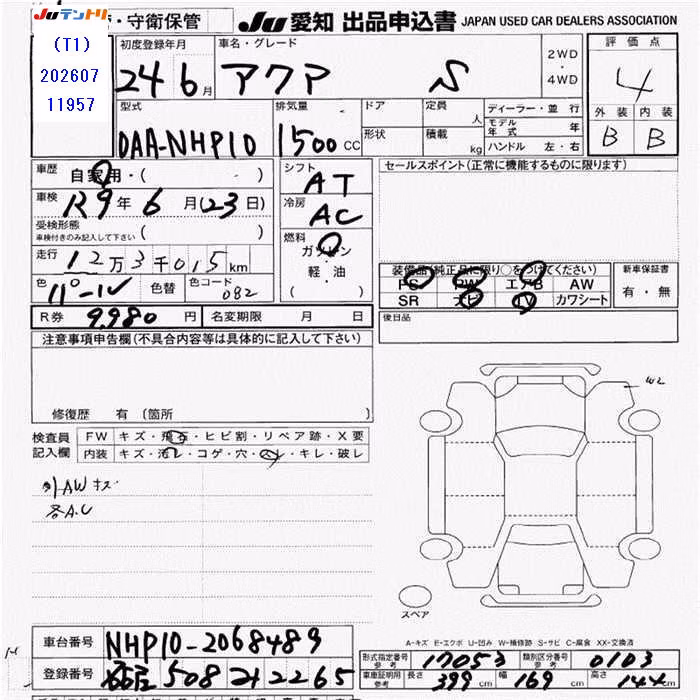 Juテントリ
(T1)
202607
11957
・守衛保管
Ju 愛知 出品申込書 JAPAN USED CAR DEALERS ASSOCIATION
初度登録年月 車名・グレード 2WD・4WD 評価点
24 6月 アクア S 4
外装 内装
B B
型式 排気量 ドア 定員 人 ディーラー・並行
モデル年式 年
DAA-NHP10 1500cc 形状 積載 kg ハンドル 左・右
車歴 自家用・( )
シフト AT
セールスポイント(正常に機能するものに限ります)
車検 R9年6月(23日)
冷房 AC
受検形態
車検付きのみ記入して下さい ( )
燃料 ガソリン
軽・油
( )
走行 12万3千015km
色 パール 色替 色コード 082
装備品(純正品に限り○をつけてください) 新車保証書
PS PW エアB AW 有・無
SR ナビ TV カワシート
R券 9,980円 名変期限 月 日
後日品
注意事項申告欄(不具合内容等は具体的に記入して下さい)
修復歴 有 (箇所 )
検査員記入欄 FW キズ・飛石・ヒビ割・リペア跡・X要
内装 キズ・汚レ・コゲ・穴・スレ・キレ・破レ
W2
外AWキズ
各A.U
スペア
A-キズ E-エクボ U-凹み W-補修跡 S-サビ C-腐食 XX-交換済
車台番号 NHP10-2068489
型式指定番号 参考 17053 類別区分番号 参考 0103
登録番号 508 2265
車庫証明用 参考 長さ 399cm 幅 169cm 高さ 144cm